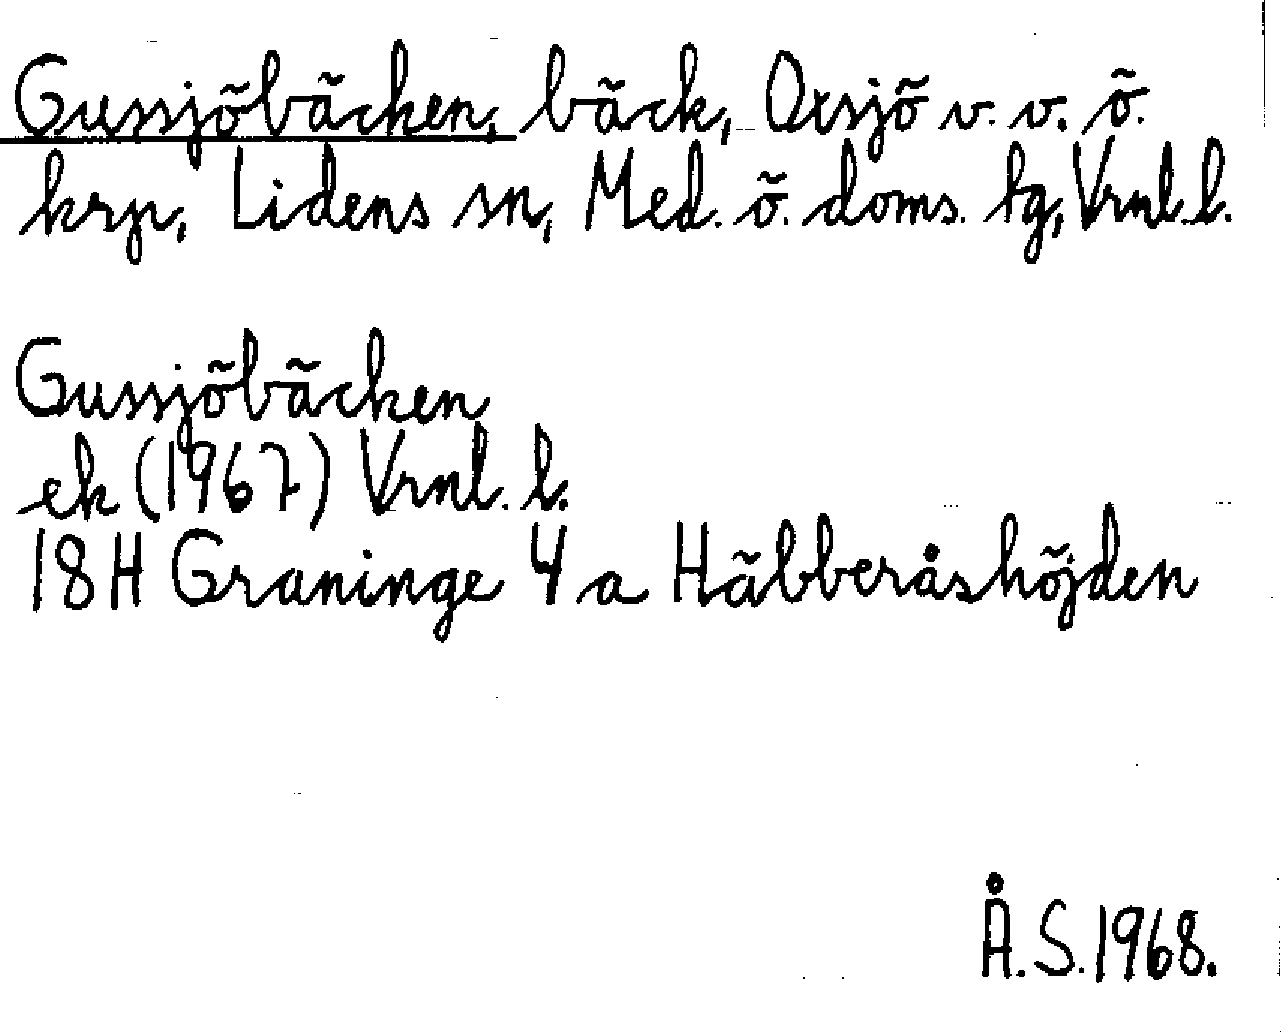 Gussjöbäcken, bäck, Oxsjö v. v. ö.
krp, Lidens sn, Med. ö. doms. tg, Vrnl. l.
Gussjöbäcken
ek (1967) Vrnl. l.
18H Graninge 4 a Häbberåshöjden
Å.S. 1968.